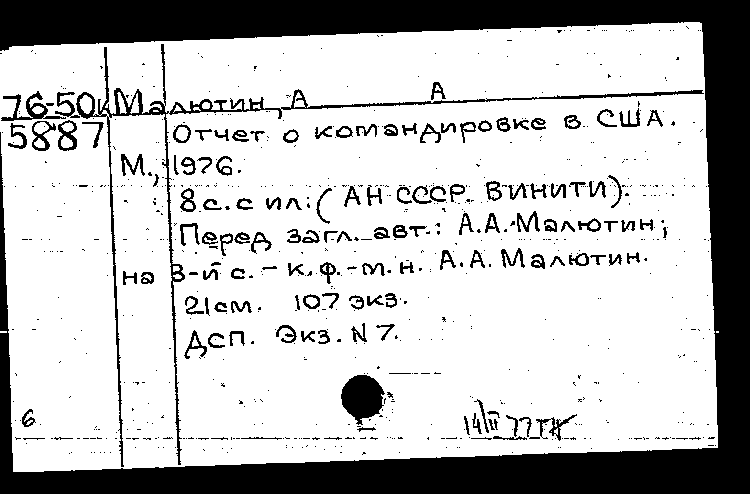 76-50к Малютин, А А
5887 Отчет о командировке в США.
М., 1976.
8 с. с ил. (АН СССР. ВИНИТИ).
Перед загл. авт.: А.А. Малютин;
на 3-й с. - к.ф.-м.н. А.А. Малютин.
21 см. 107 экз.
ДСП. Экз. N 7.
6
14/III 77